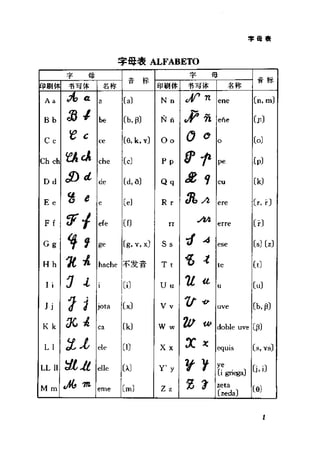 字母表
字母表 ALFABETO
字 母 音 标 字 母 音 标
印刷体 书写体 名称 印刷体 书写体 名称
A a A a a (a) N n N n ene (n, m)
B b B b be (b, β) Ñ ñ Ñ ñ eñe (ɲ)
C c C c ce (θ, k, ɤ) O o O o o (o)
Ch ch Ch ch che (c) P p P p pe (p)
D d D d de (d, ð) Q q Q q cu (k)
E e E e e (e) R r R r ere (r, r̄)
F f F f efe (f) rr rr erre (r̄)
G g G g ge (g, v, x) S s S s ese (s) (z)
H h H h hache 不发音 T t T t te (t)
I i I i i (i) U u U u u (u)
J j J j jota (x) V v V v uve (b, β)
K k K k ca (k) W w W w doble uve (β)
L l L l ele (l) X x X x equis (s, ɤs)
LL ll LL ll elle (λ) Y y Y y ye (i griega) (j, i)
M m M m eme (m) Z z Z z zeta (zeda) (θ)
1